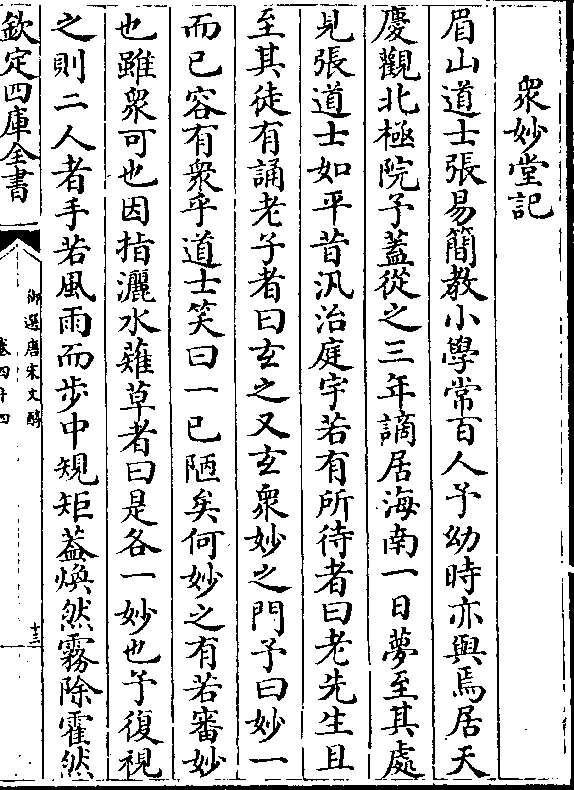 衆妙堂記
眉山道士張易簡教小學常百人予幼時亦與焉居天
慶觀北極院予蓋從之三年謫居海南一日夢至其處
見張道士如平昔汎治庭宇若有所待者曰老先生且
至其徒有誦老子者曰玄之又玄衆妙之門予曰妙一
而已容有衆乎道士笑曰一已陋矣何妙之有若審妙
也雖衆可也因指灑水薙草者曰是各一妙也予復視
之則二人者手若風雨而步中規矩蓋煥然霧除霍然
欽定四庫全書
御選唐宋文醇
卷四十四
十三